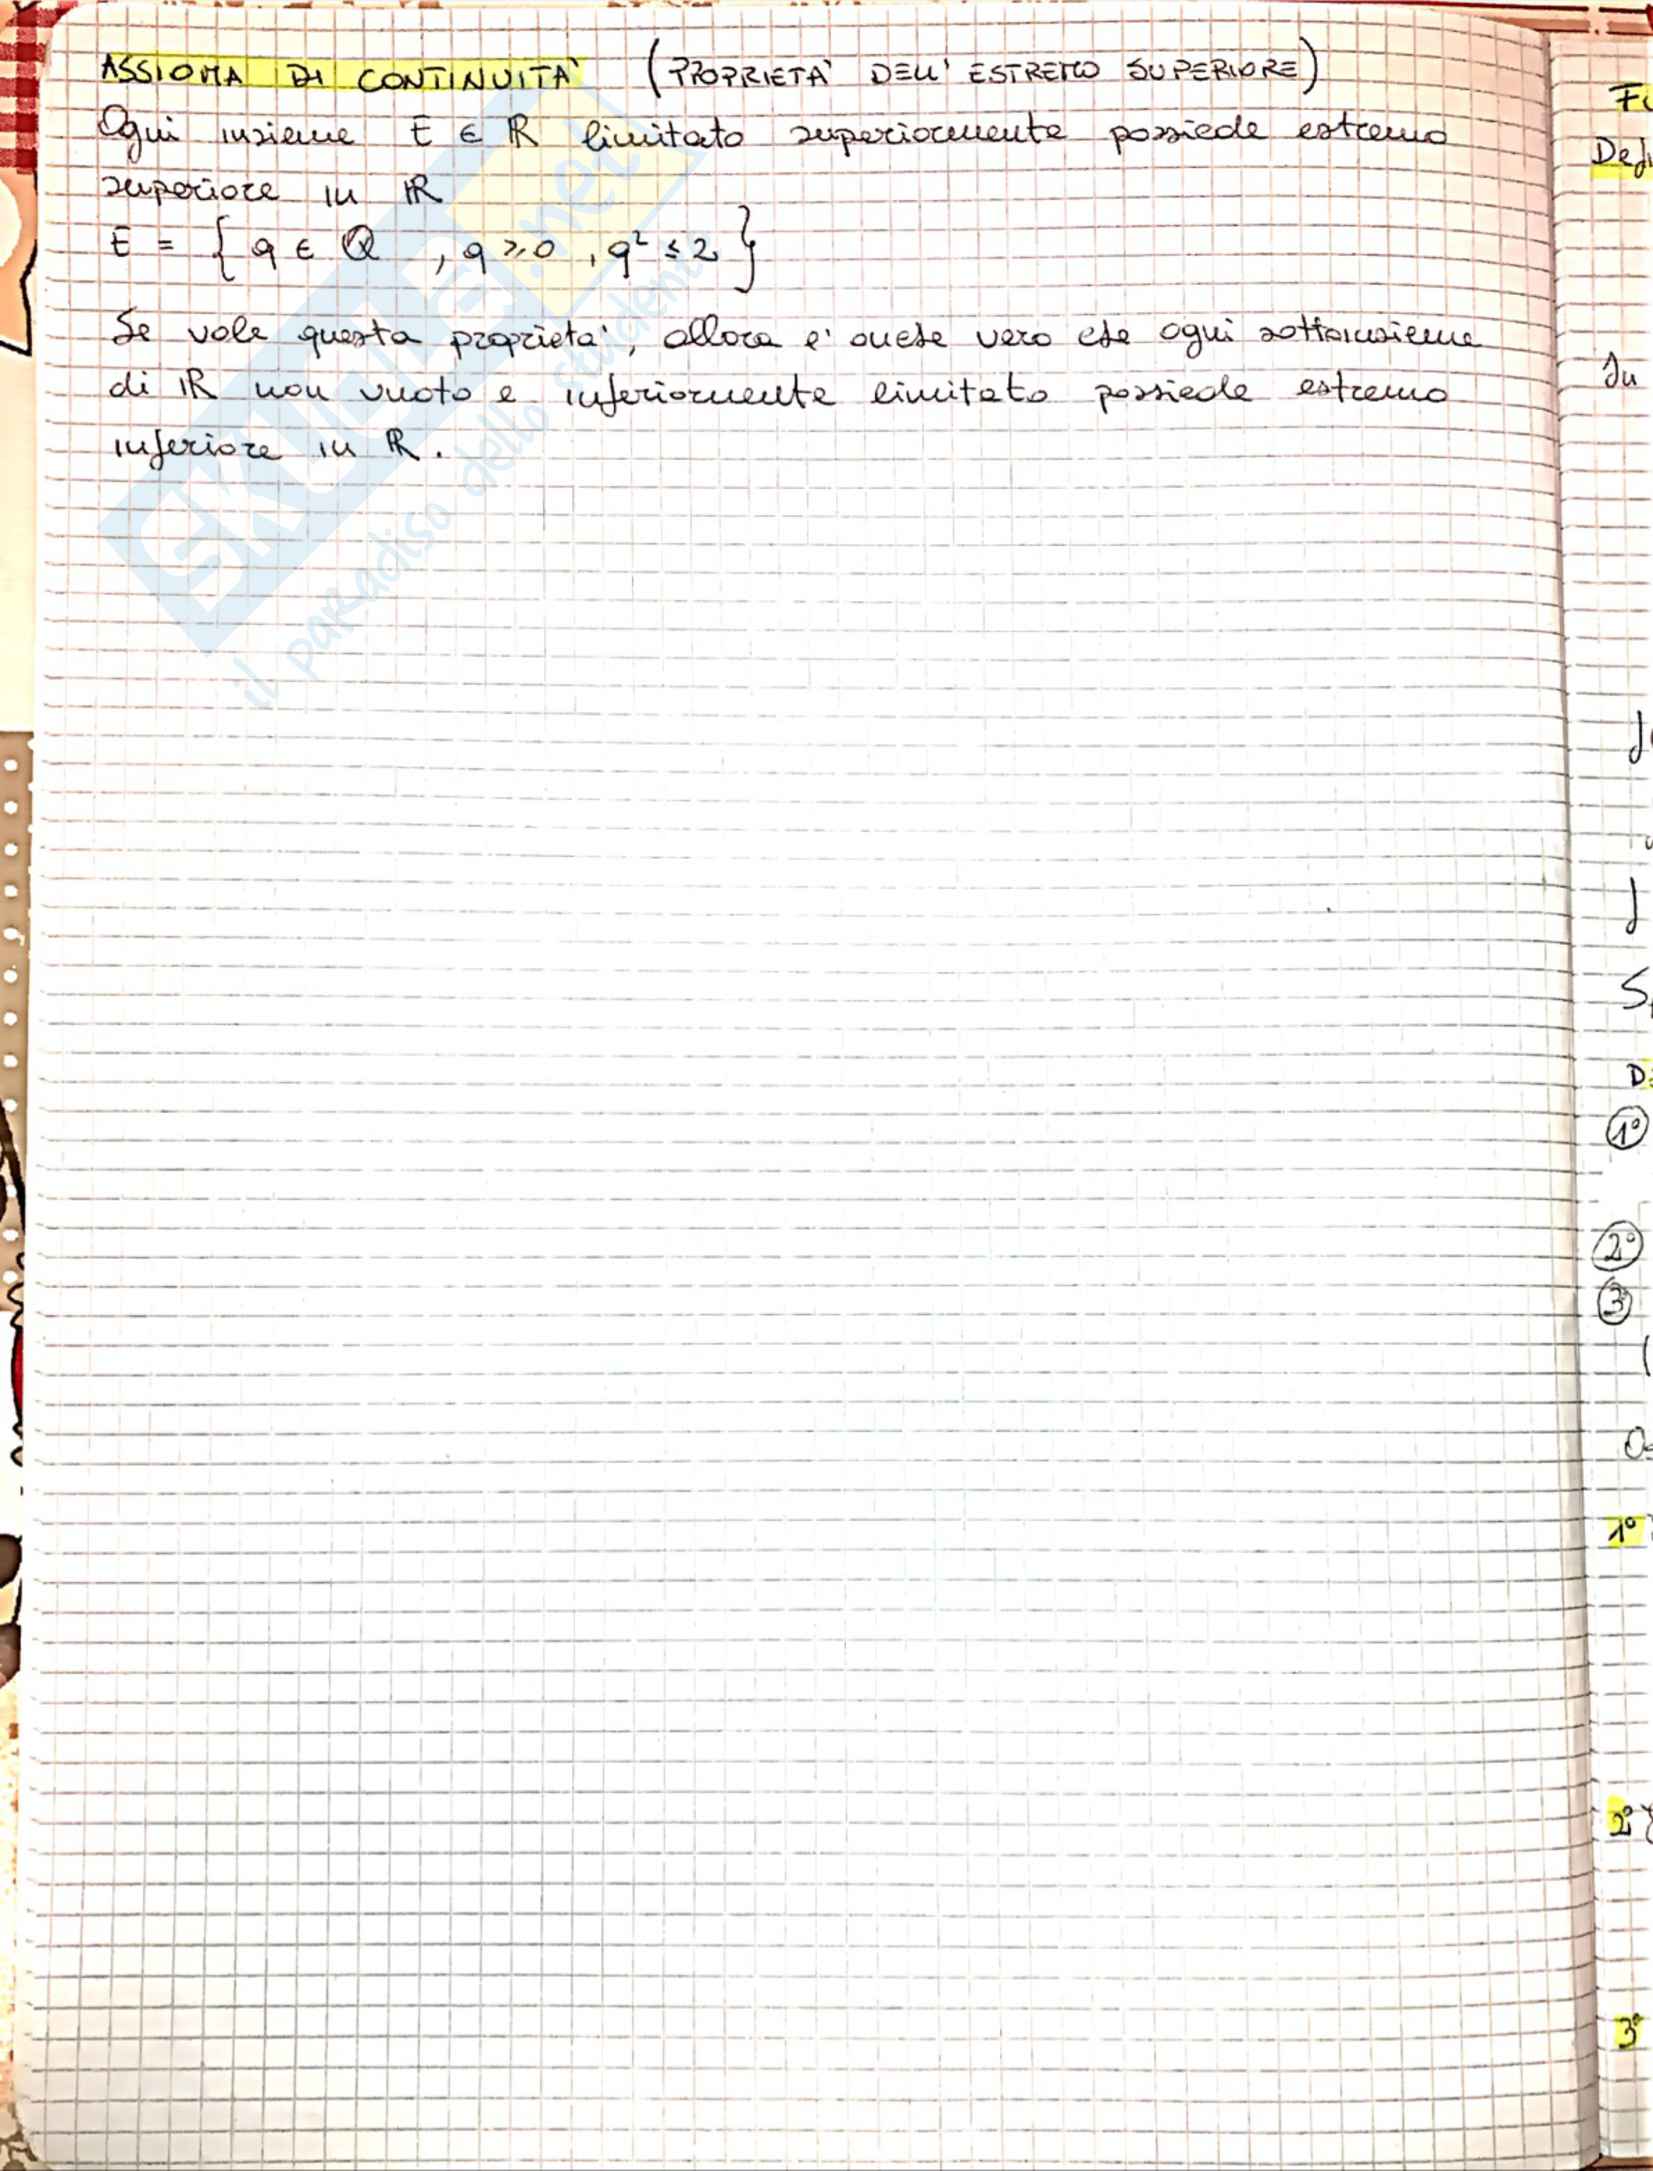 ASSIOMA DI CONTINUITA' (PROPRIETA' DELL' ESTREMO SUPERIORE)
Ogni insieme E ∈ ℝ limitato superiormente possiede estremo
superiore in ℝ
E = { q ∈ ℚ , q ≥ 0 , q² ≤ 2 }
Se vale questa proprieta', allora e' anche vero che ogni sottoinsieme
di ℝ non vuoto e inferiormente limitato possiede estremo
inferiore in ℝ.
SKUOLA.net
il paradiso dello studente
Def
In
1°
2°
3
1°
2°
3°